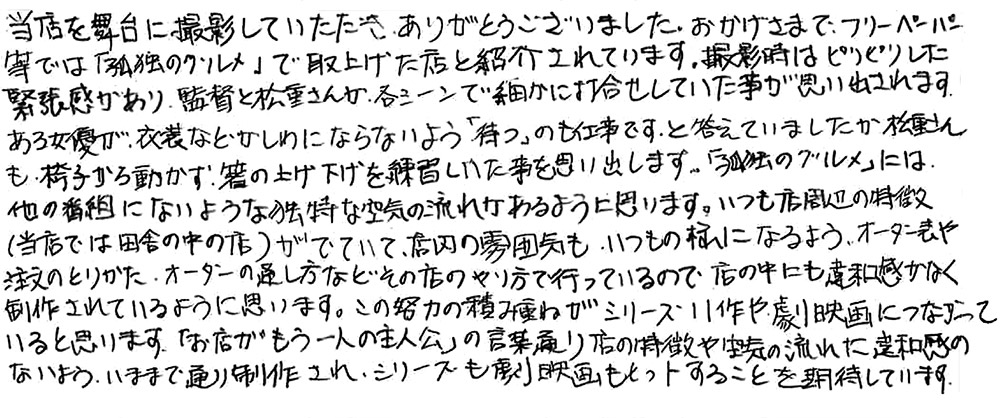 当店を舞台に撮影していただき、ありがとうございました。おかげさまで、フリーペーパー
等では「孤独のグルメ」で取上げた店と紹介されています。撮影時はピリピリした
緊張感があり、監督と松重さんが、各シーンで細かに打合せしていた事が思い出されます。
ある女優が、衣裳などがしわにならないよう「待つ」のも仕事です。と答えていましたが松重さん
も、椅子から動かず、箸の上げ下げを練習していた事を思い出します。「孤独のグルメ」には、
他の番組にないような独特な空気の流れがあるように思います。いつも店周辺の特徴
(当店では田舎の中の店)がでていて、店内の雰囲気も、いつもの様になるよう、オーダー表や
注文のとりかた、オーダーの通し方などその店のやり方で行っているので、店の中にも違和感がなく
制作されているように思います。この努力の積み重ねがシリーズ11作や劇映画につながって
いると思います。「お店がもう一人の主人公」の言葉通り店の特徴や空気の流れに違和感の
ないよう、いままで通り制作され、シリーズも劇映画もヒットすることを期待しています。